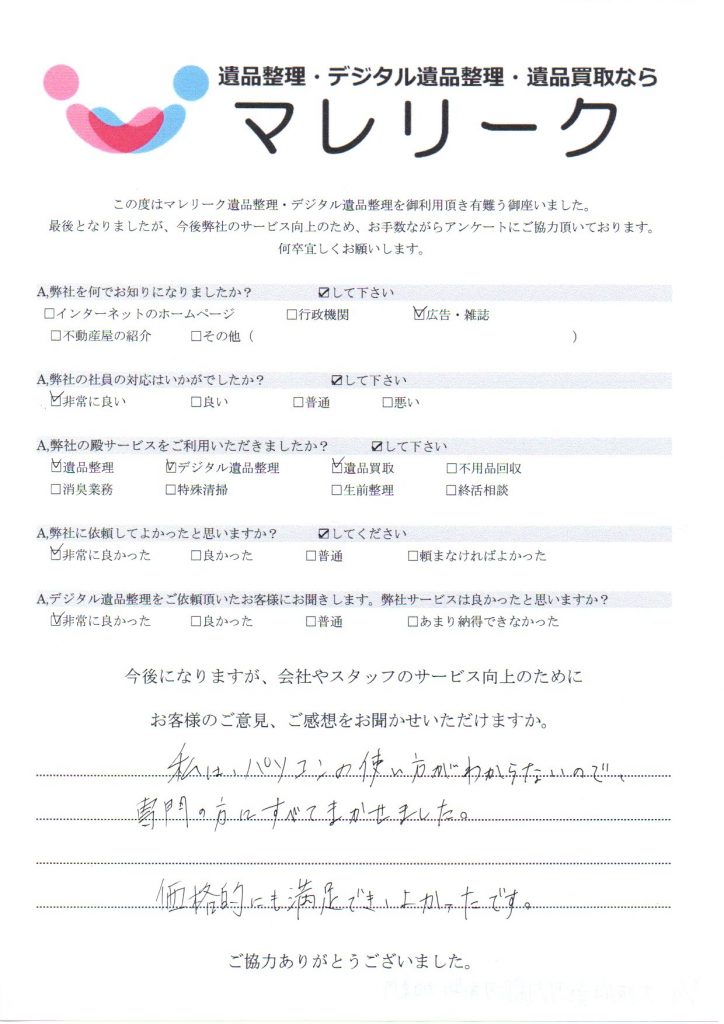 遺品整理・デジタル遺品整理・遺品買取なら
マレリーク
この度はマレリーク遺品整理・デジタル遺品整理を御利用頂き有難う御座いました。
最後となりましたが、今後弊社のサービス向上のため、お手数ながらアンケートにご協力頂いております。
何卒宜しくお願いします。
A,弊社を何でお知りになりましたか？ ☑して下さい
□インターネットのホームページ □行政機関 ☑広告・雑誌
□不動産屋の紹介 □その他（ ）
A,弊社の社員の対応はいかがでしたか？ ☑して下さい
☑非常に良い □良い □普通 □悪い
A,弊社の殿サービスをご利用いただきましたか？ ☑して下さい
☑遺品整理 ☑デジタル遺品整理 ☑遺品買取 □不用品回収
□消臭業務 □特殊清掃 □生前整理 □終活相談
A,弊社に依頼してよかったと思いますか？ ☑してください
☑非常に良かった □良かった □普通 □頼まなければよかった
A,デジタル遺品整理をご依頼頂いたお客様にお聞きします。弊社サービスは良かったと思いますか？
☑非常に良かった □良かった □普通 □あまり納得できなかった
今後になりますが、会社やスタッフのサービス向上のために
お客様のご意見、ご感想をお聞かせいただけますか。
私は、パソコンの使い方がわからないので、
専門の方にすべてまかせました。
価格的にも満足でき、よかったです。
ご協力ありがとうございました。